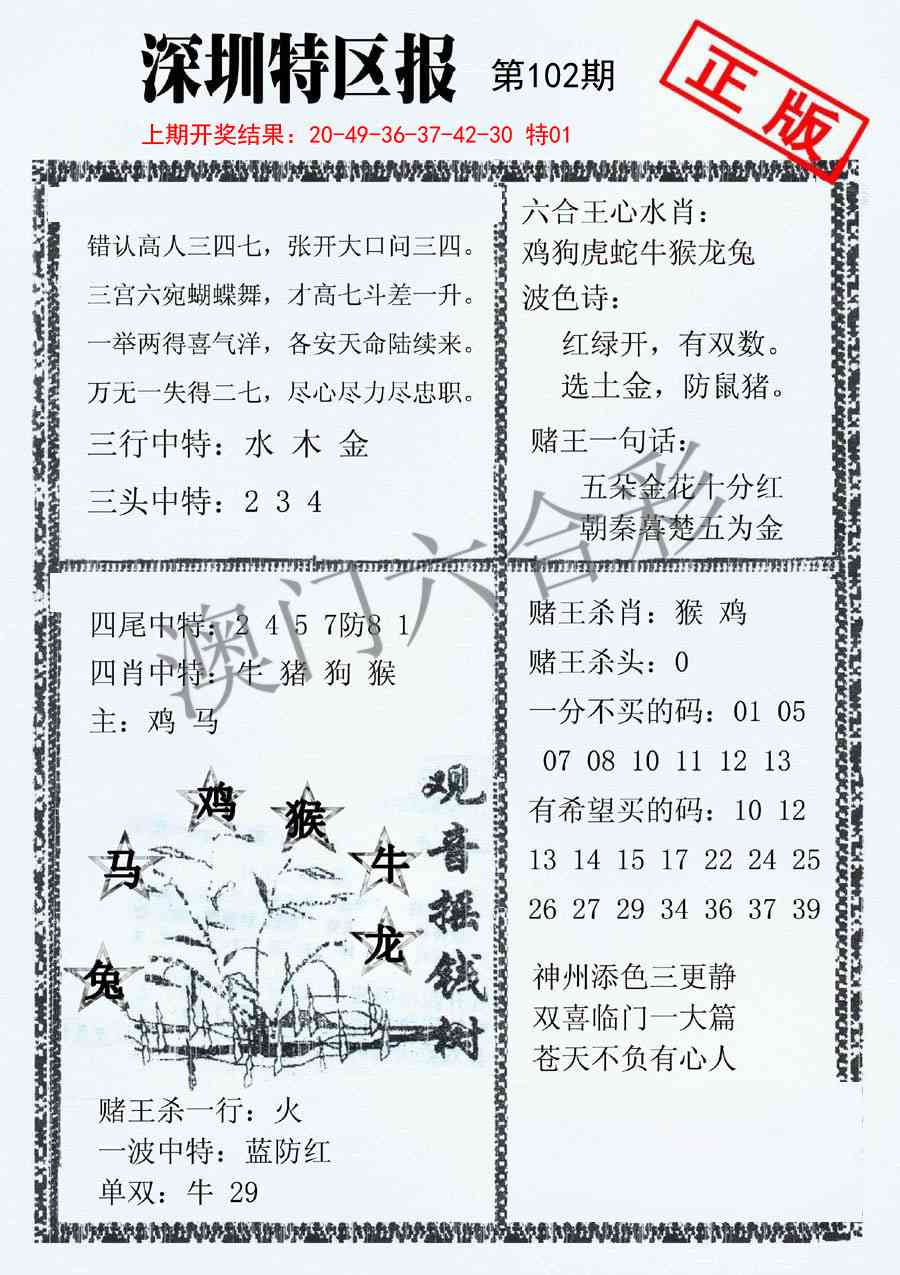 深圳特区报 第102期
正版
上期开奖结果：20-49-36-37-42-30 特01
错认高人三四七，张开大口问三四。
三宫六宛蝴蝶舞，才高七斗差一升。
一举两得喜气洋，各安天命陆续来。
万无一失得二七，尽心尽力尽忠职。
三行中特：水 木 金
三头中特：2 3 4
六合王心水肖：
鸡狗虎蛇牛猴龙兔
波色诗：
红绿开，有双数。
选土金，防鼠猪。
赌王一句话：
五朵金花十分红
朝秦暮楚五为金
澳门六合彩
四尾中特：2 4 5 7防8 1
四肖中特：牛 猪 狗 猴
主：鸡 马
鸡
猴
马
牛
龙
兔
观音摇钱树
赌王杀一行：火
一波中特：蓝防红
单双：牛 29
赌王杀肖：猴 鸡
赌王杀头：0
一分不买的码：01 05
07 08 10 11 12 13
有希望买的码：10 12
13 14 15 17 22 24 25
26 27 29 34 36 37 39
神州添色三更静
双喜临门一大篇
苍天不负有心人